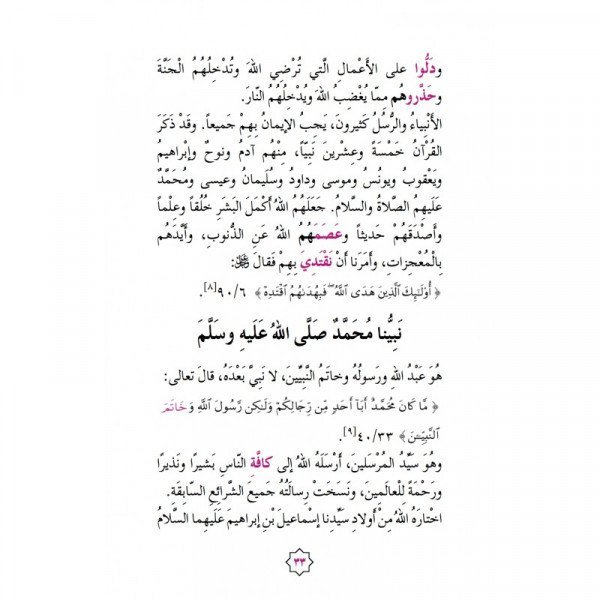 ودَلُّوا على الأَعْمالِ الَّتي تُرْضِي اللهَ وتُدْخِلُهُمُ الْجَنَّةَ
وحَذَّروهُم مِمّا يُغْضِبُ اللهَ ويُدْخِلُهُمُ النّارَ.
الأَنْبِياءُ والرُّسُلُ كَثيرونَ، يَجِبُ الإيمانُ بِهِمْ جَميعاً. وقَدْ ذَكَرَ
القُرْآنُ خَمْسَةً وعِشْرينَ نَبِيّاً، مِنْهُم آدمُ ونوحٌ وإبراهيمُ
ويَعْقوبُ ويونُسُ وموسى وداودُ وسُلَيمانُ وعيسى ومُحَمَّدٌ
عَلَيهِمُ الصَّلاةُ والسَّلامُ. جَعَلَهُمُ اللهُ أَكْمَلَ البَشَرِ خُلُقاً وعِلْماً
وأَصْدَقَهُمْ حَديثاً وعَصَمَهُمُ اللهُ عَنِ الذُّنوبِ، وأَيَّدَهُم
بِالْمُعْجِزاتِ، وأَمَرَنا أَنْ نَقْتَدِيَ بِهِمْ فَقالَ ﷻ:
﴿ أُوْلَٰٓئِكَ ٱلَّذِينَ هَدَى ٱللَّهُۖ فَبِهُدَىٰهُمُ ٱقْتَدِهْۗ ﴾ ٩٠/٦[٨].
نَبِيُّنا مُحَمَّدٌ صَلَّى اللهُ عَلَيهِ وسَلَّمَ
هُوَ عَبْدُ اللهِ ورَسولُهُ وخاتَمُ النَّبِيّينَ، لا نَبِيَّ بَعْدَهُ، قالَ تعالى:
﴿ مَّا كَانَ مُحَمَّدٌ أَبَآ أَحَدٍ مِّن رِّجَالِكُمْ وَلَٰكِن رَّسُولَ ٱللَّهِ وَخَاتَمَ
ٱلنَّبِيِّـۧنَۗ ﴾ ٤٠/٣٣[٩].
وهُوَ سَيِّدُ المُرْسَلينَ، أَرْسَلَهُ اللهُ إلى كافَّةِ النّاسِ بَشيرًا ونَذيرًا
ورَحْمَةً لِلْعالَمينَ، ونَسَخَتْ رِسالَتُهُ جَميعَ الشَّرائِعِ السّابِقَةِ.
اخْتارَهُ اللهُ مِنْ أَولادِ سَيِّدِنا إسْماعيلَ بْنِ إبراهيمَ عَلَيهِما السَّلامُ
٣٣